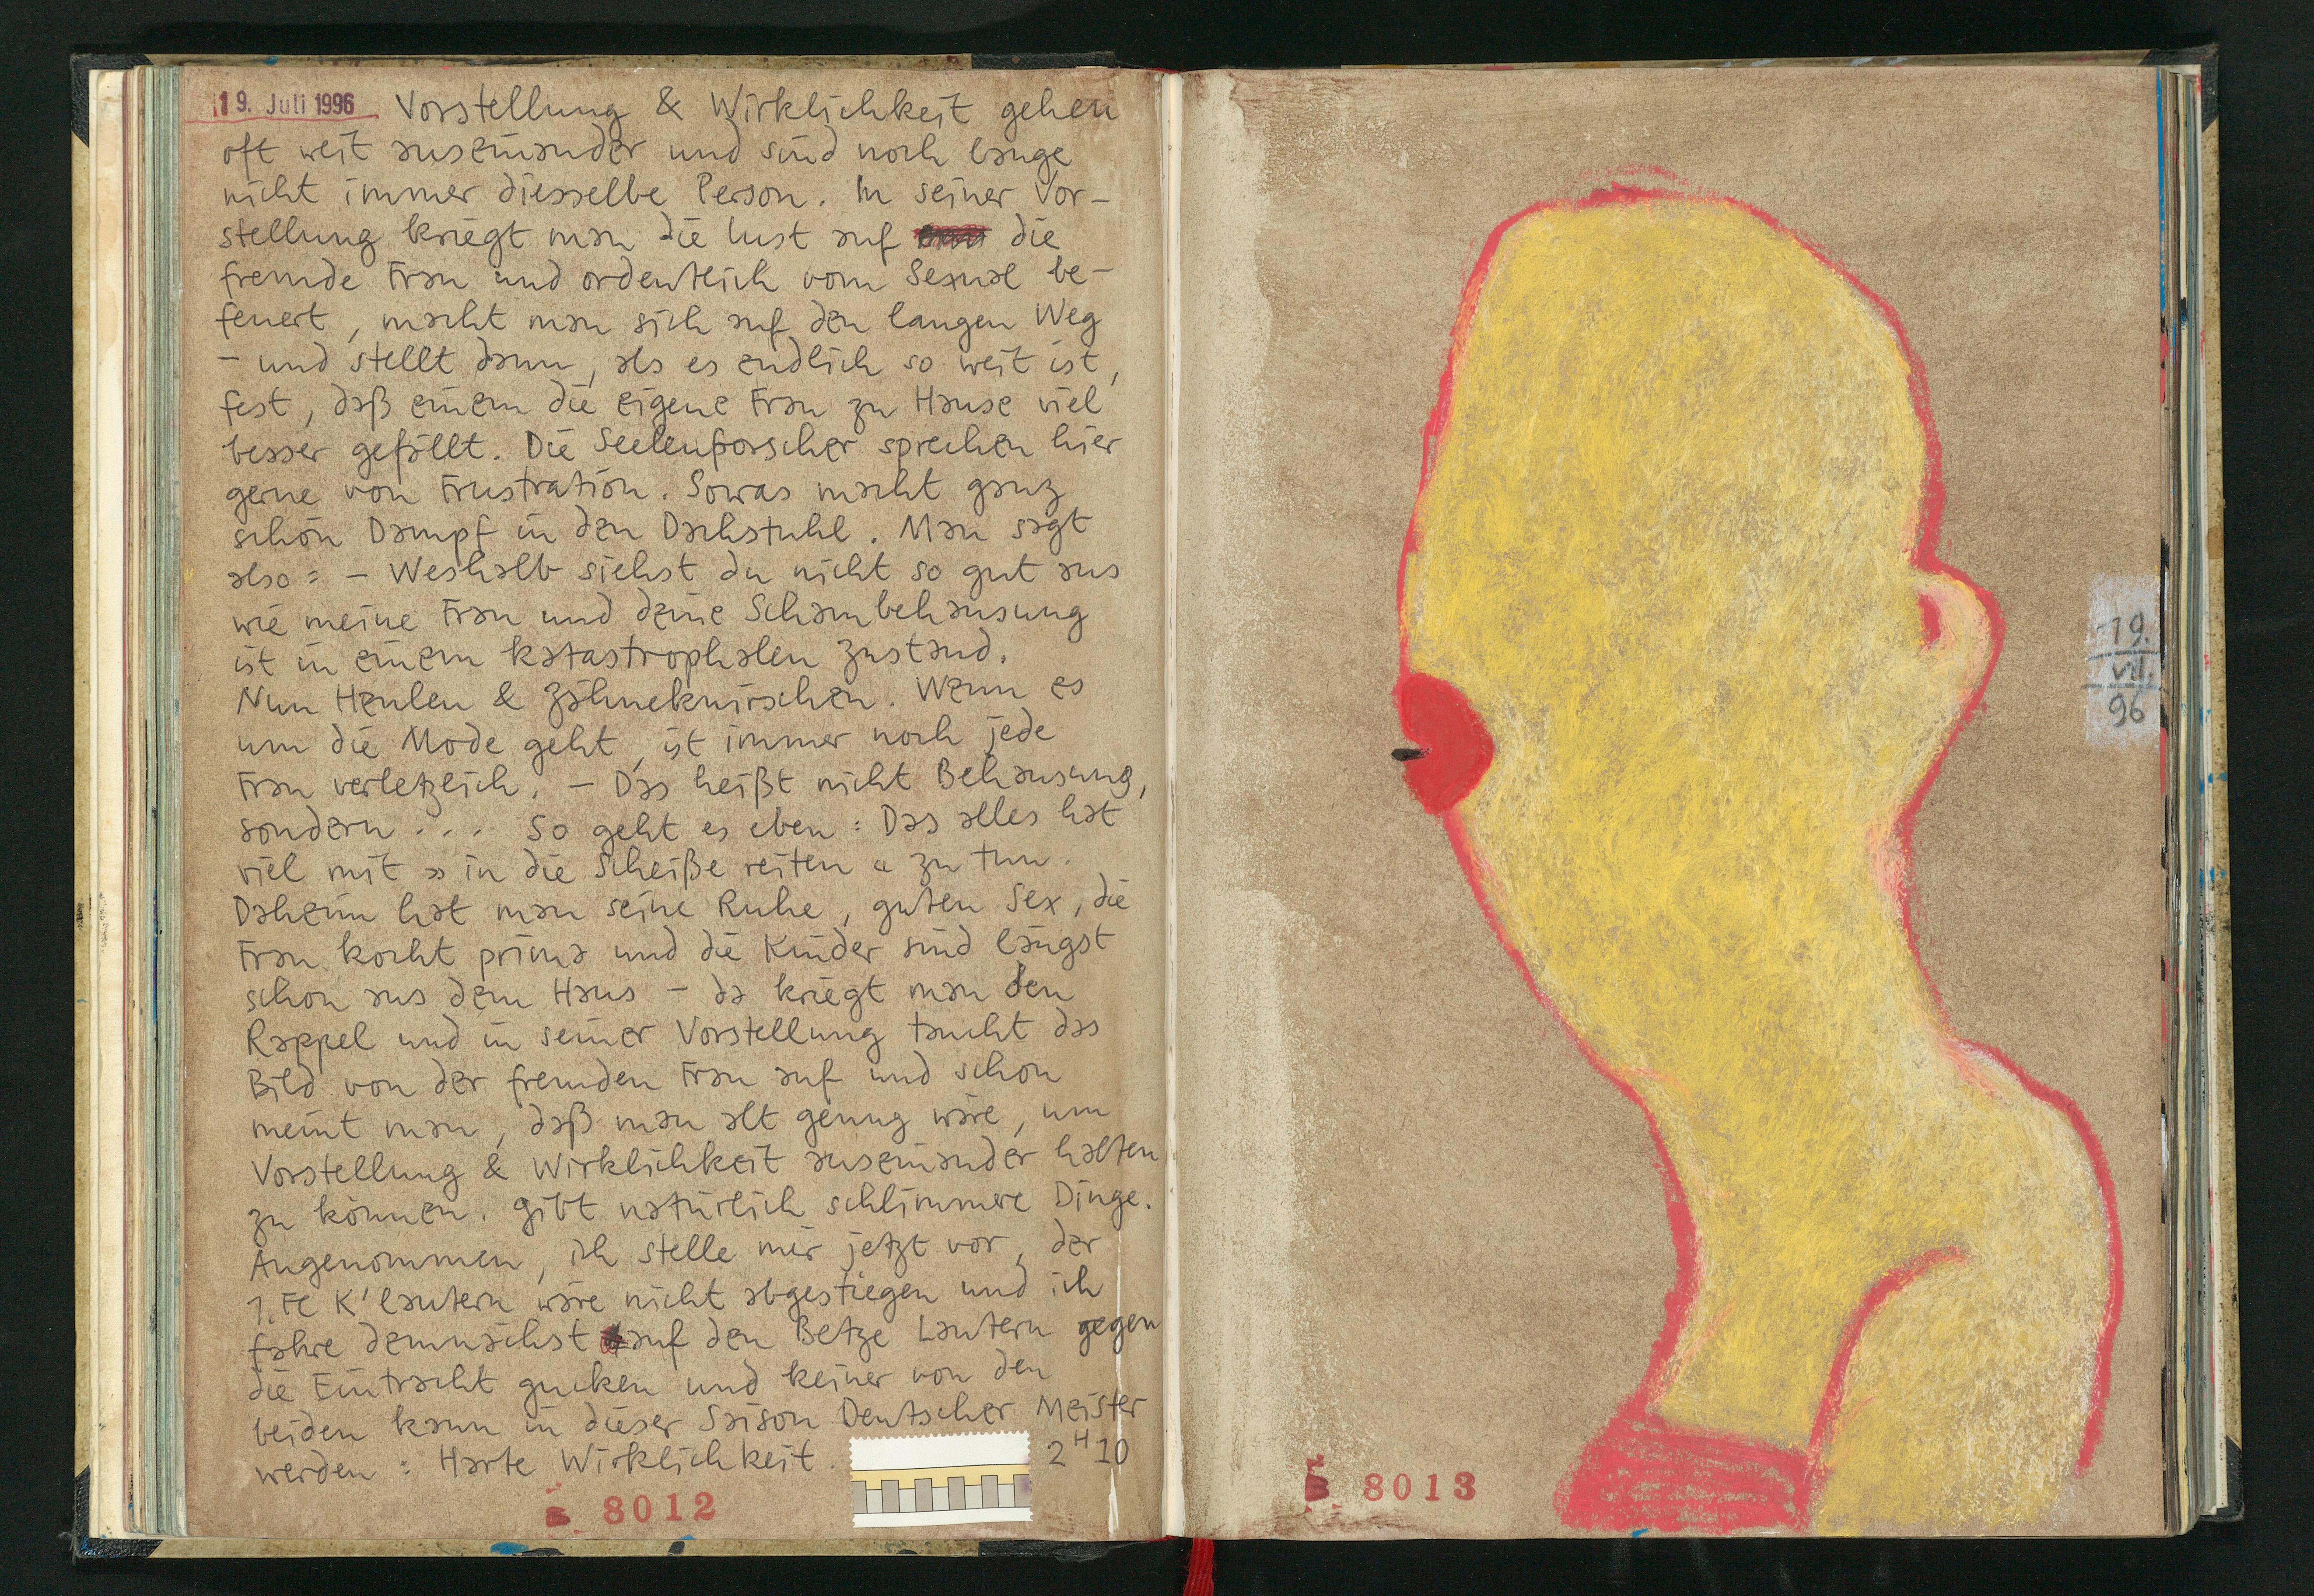 19. Juli 1996 Vorstellung & Wirklichkeit gehen
oft weit auseinander und sind noch lange
nicht immer diesselbe Person. In seiner Vor-
stellung kriegt man die Lust auf die
fremde Frau und ordentlich vom Sexual be-
feuert, macht man sich auf den langen Weg
- und stellt dann, als es endlich so weit ist,
fest, daß einem die eigene Frau zu Hause viel
besser gefällt. Die Seelenforscher sprechen hier
gerne von Frustration. Sowas macht ganz
schön Dampf in den Dachstuhl. Man sagt
also: - Weshalb siehst du nicht so gut aus
wie meine Frau und deine Schambehausung
ist in einem katastrophalen Zustand.
Nun Heulen & Zähneknirschen. Wenn es
um die Mode geht, ist immer noch jede
Frau verletzlich. - Das heißt nicht Behausung,
sondern ... So geht es eben: Das alles hat
viel mit » in die Scheiße reiten « zu tun.
Daheim hat man seine Ruhe, guten Sex, die
Frau kocht prima und die Kinder sind längst
schon aus dem Haus - da kriegt man den
Rappel und in seiner Vorstellung taucht das
Bild von der fremden Frau auf und schon
meint man, daß man alt genug wäre, um
Vorstellung & Wirklichkeit auseinander halten
zu können. Gibt natürlich schlimmere Dinge.
Angenommen, ich stelle mir jetzt vor, der
1. FC K'lautern wäre nicht abgestiegen und ich
fahre demnächst auf den Betze Lautern gegen
die Eintracht gucken und keiner von den
beiden kann in dieser Saison Deutscher Meister
werden: Harte Wirklichkeit. 2H10
8012
19.
VII.
96
8013